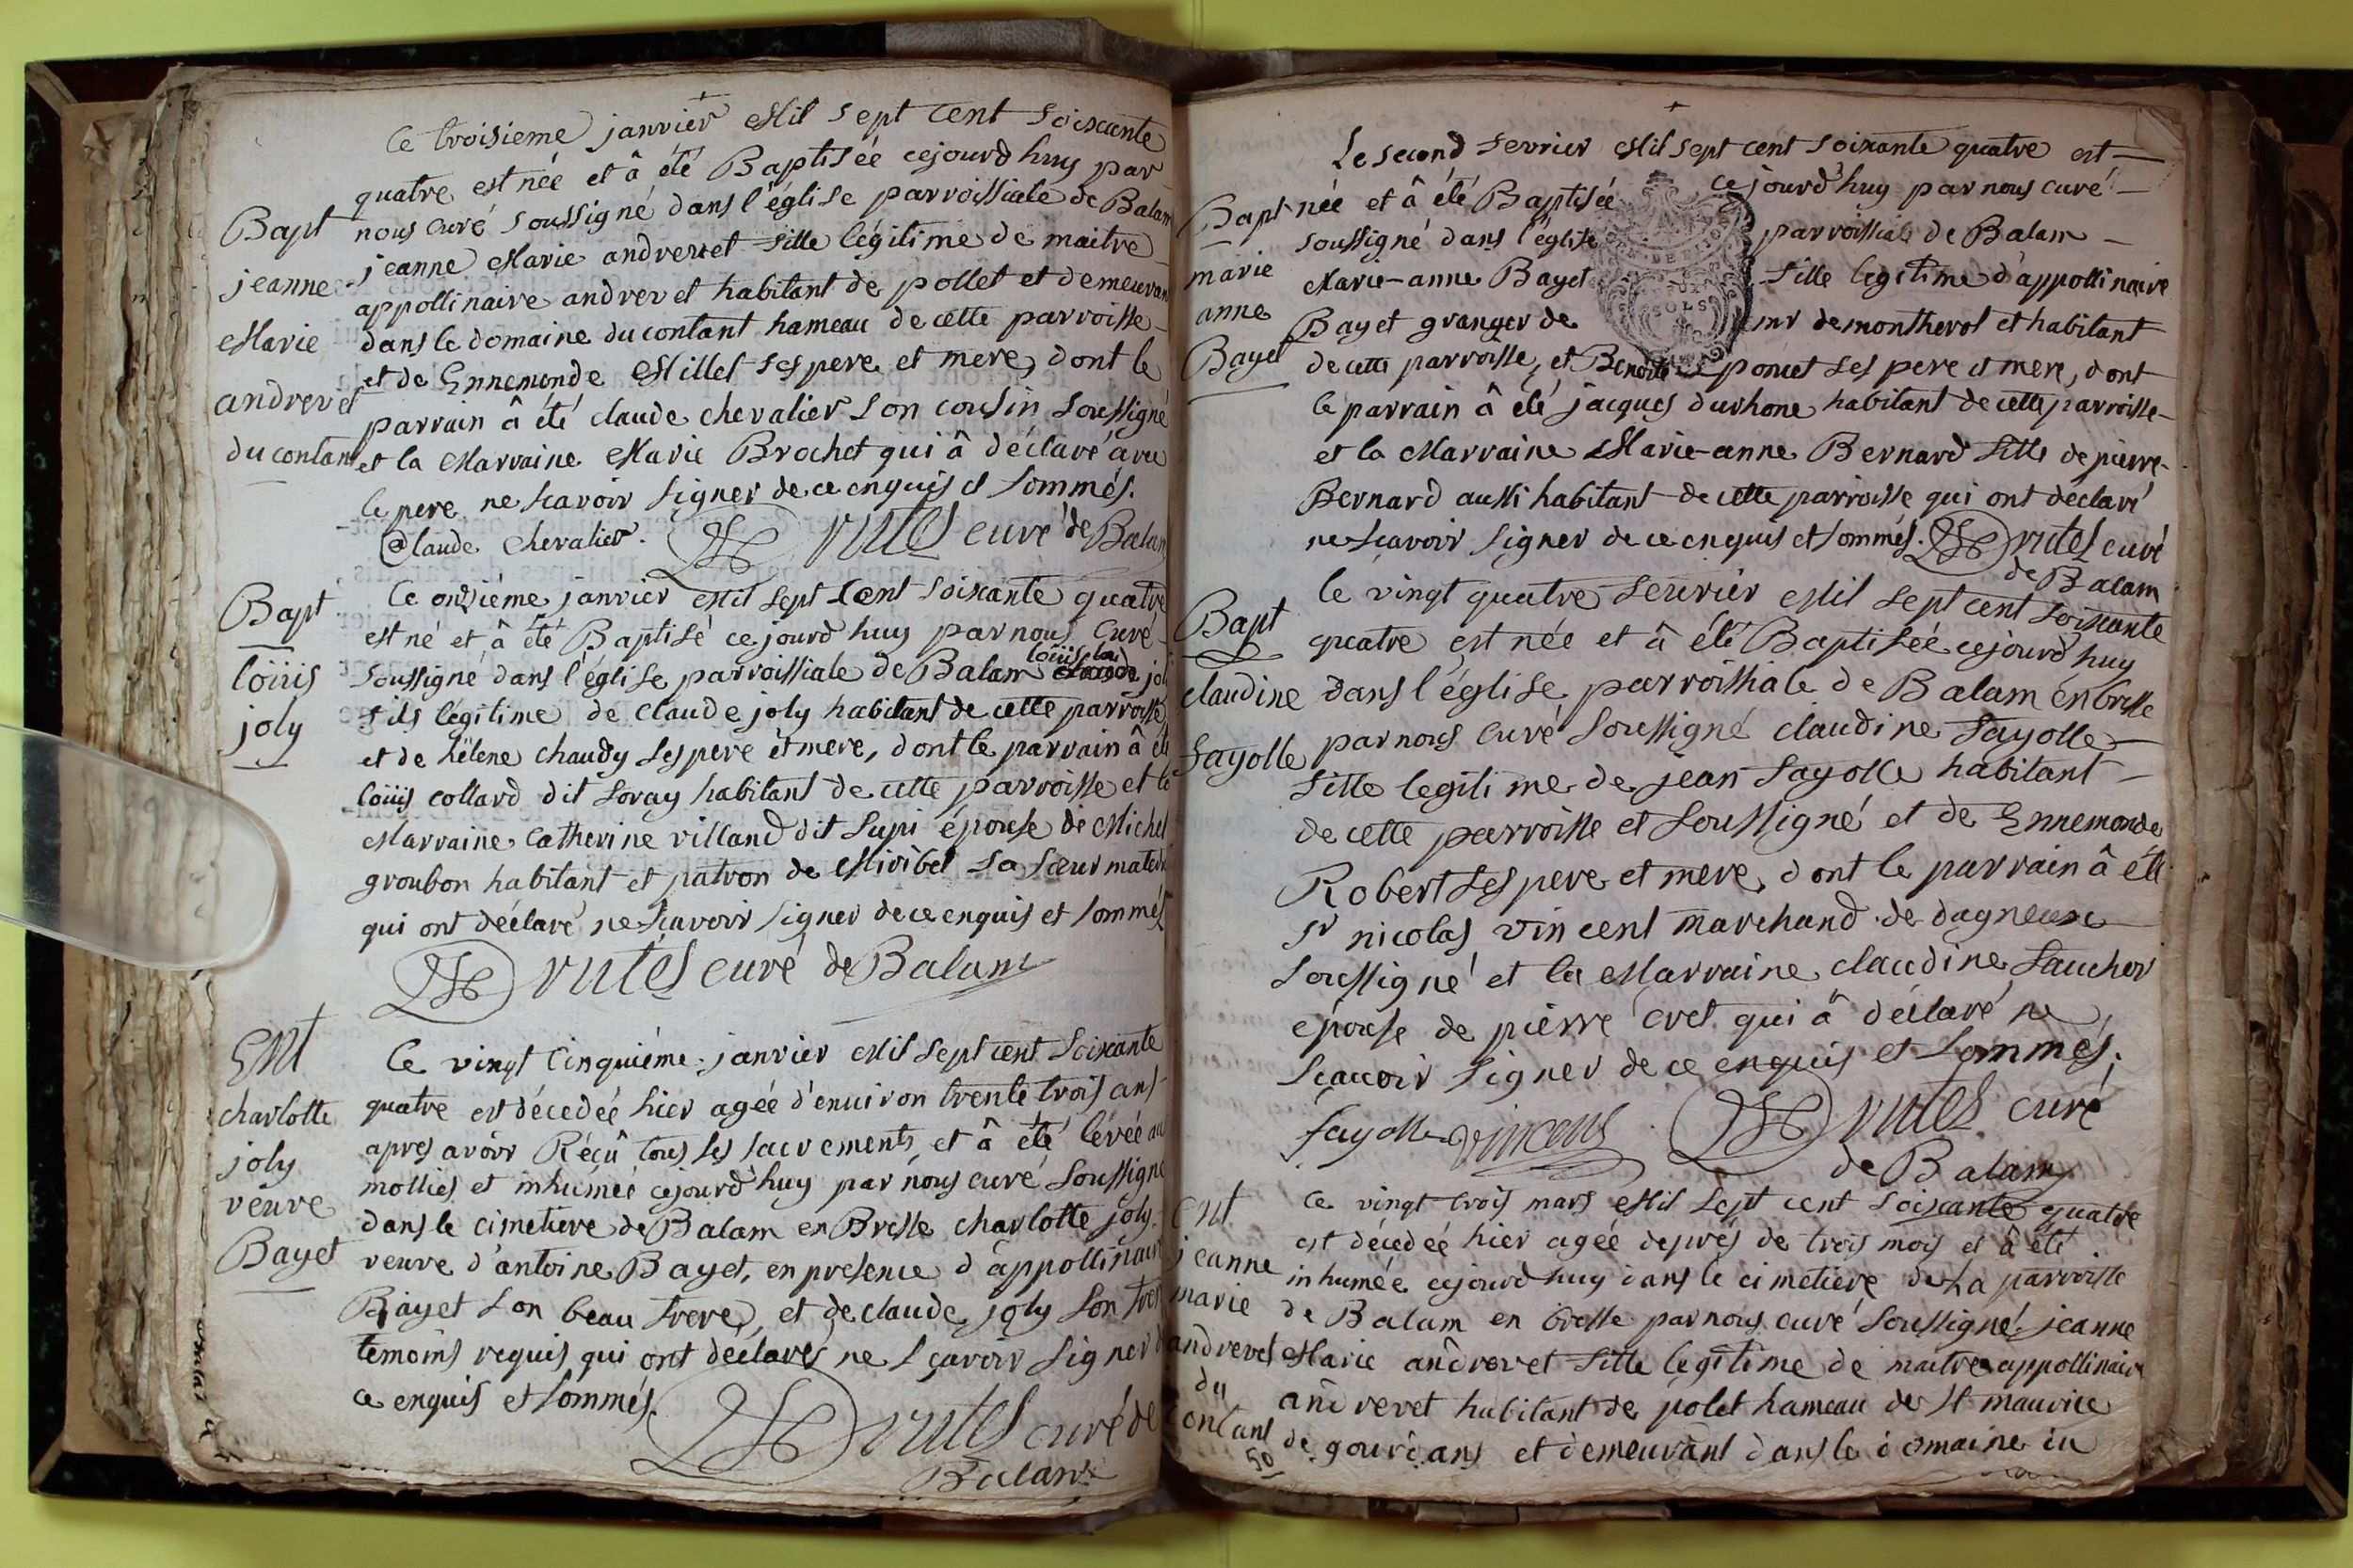 Ce troisieme janvier Mil sept cent soixante
quatre est née et â été Baptisée cejourd huy par
nous curé soussigné dans l'église parroissiale de Balam
Bapt
jeanne Marie andrevet fille légitime de maitre
jeanne
appollinaire andrevet habitant de pollet et demeurant
Marie
dans le domaine du contant hameau de cette parroisse
et de Ennemonde Millet ses pere et mere, dont le
andrevet
parrain â été claude chevalier son cousin soussigné
du contant
et la Marraine Marie Brochet qui â déclaré avec
le pere ne scavoir signer de ce enquis et sommés.
Claude chevalier. Drutel curé de Balam
Bapt
Ce onzième janvier Mil sept Cent soixante quatre
est né et â été Baptisé ce jourd huy par nous Curé
loüis
loüis
soussigné dans l'église parroissiale de Balam joly
joly
fils legitime de claude joly habitant de cette parroisse
et de hélene chaudy ses pere et mere, dont le parrain â été
loüis collard dit foray habitant de cette parroisse et la
Marraine Catherine villand dit supi épouse de Michel
groubon habitant et patron de Miribel sa sœur
qui ont déclaré ne scavoir signer de ce enquis et sommés
Drutel curé de Balam
Ent
charlotte
joly
veuve
Bayet
Ce vingt cinquiéme janvier Mil sept cent soixante
quatre est décedéé hier agéé d'environ trente trois ans
apres avoir Réçû tous les sacrements, et â été levéé au
mollies et inhuméé cejourd'huy par nous curé soussigné
dans le cimetiere de Balam en Bresse charlotte joly
veuve d'antoine Bayet, en presence d'appollinaire
Bayet son beau frere, et de claude joly son frere
temoins requis qui ont declarés ne sçavoir signer de
ce enquis et sommés. Drutel curé de
Balam
Le second fevrier Mil sept cent soixante quatre est
Bapt
née et â été Baptisée ce jourd'huy par nous curé
soussigné dans l'église parroissiale de Balam
marie
anne
Bayet
Marie-anne Bayet fille legitime d'appollinaire
Bayet granger de mr de montherot et habitant
de cette parroisse, et Benoite poncet ses pere et mere, dont
le parrain â été jacques durhone habitant de cette parroisse
et la Marraine Marie-anne Bernard fille de pierre
Bernard aussi habitant de cette parroisse qui ont déclaré
ne scavoir signer de ce enquis et sommés. Drutel curé
de Balam
Bapt
claudine
fayolle
le vingt quatre fevrier Mil sept cent soixante
quatre est née et â été Baptiséé cejourd huy
dans l'église parroissiale de Balam en bresse
par nous curé soussigné claudine fayolle
fille legitime de jean fayolle habitant
de cette parroisse et soussigné et de Ennemonde
Robert ses pere et mere, dont le parrain â été
sr nicolas vincent marchand de dagneux
soussigné et la Marraine claudine faucher
épouse de pierre cret qui â déclaré ne
scavoir signer de ce enquis et sommés.
fayolle vincent Drutel curé
de Balam
Ent
jeanne
marie
andrevet
du
contant
50
Ce vingt trois mars Mil sept cent soixante quatre
est décedéé hier agéé de prés de trois mois et â été
inhumée cejourd huy dans le cimetiere de La parroisse
de Balam en bresse par nous curé soussigné jeanne
Marie andrevet fille legitime de maitre appollinaire
andrevet habitant de polet hameau de St maurice
de gourdans et demeurant dans le domaine du